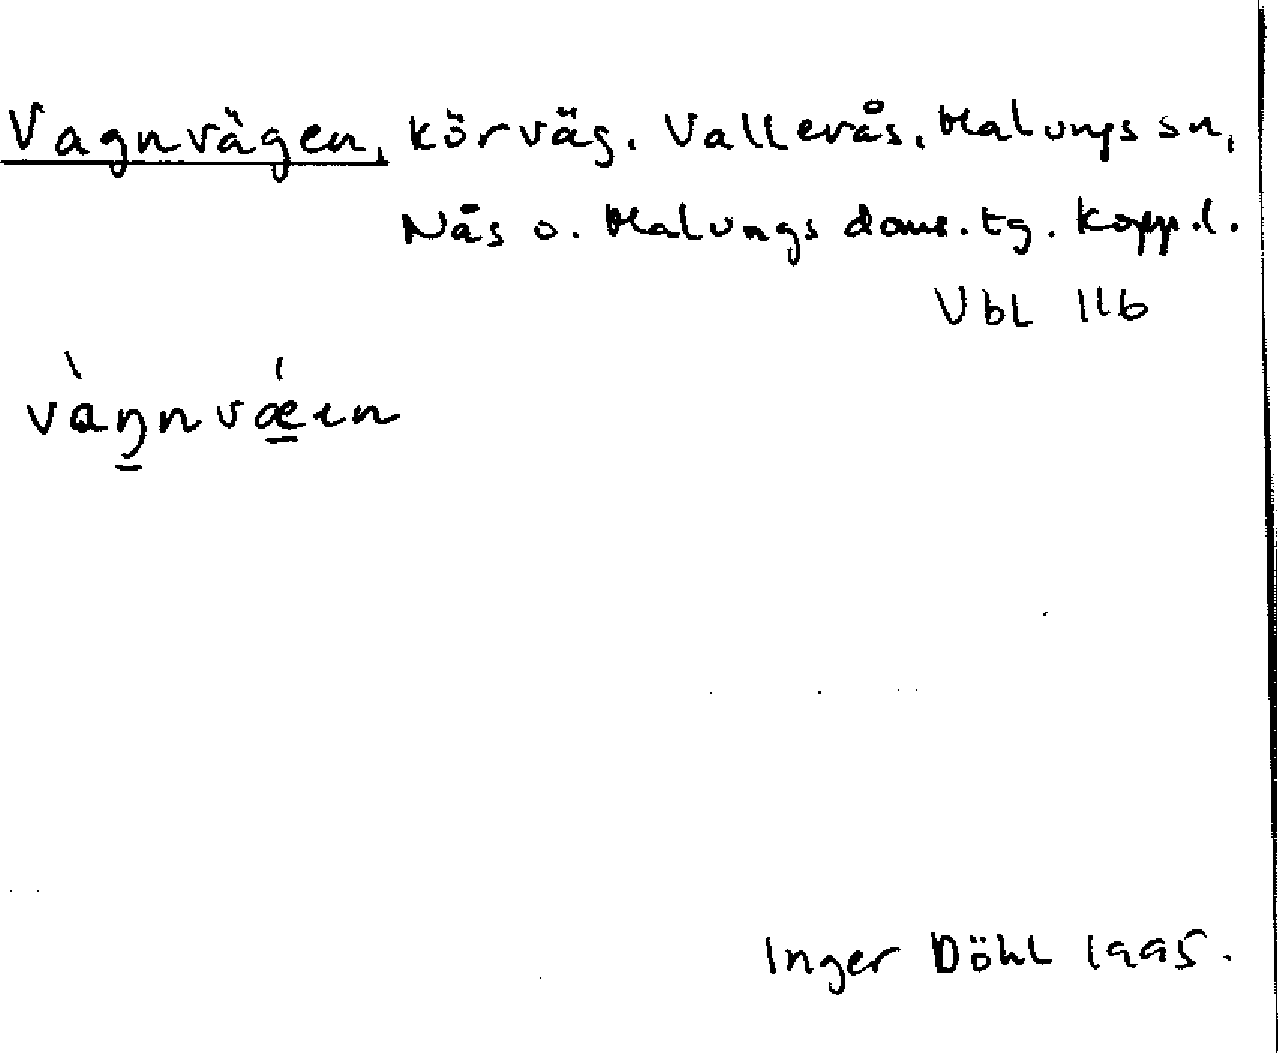 Vagnvägen, körväg. Vallerås, Malungs sn,
Nås o. Malungs doms. tg. Kopp. l.
Vbl 11b
vàŋnvǽın
Inger Döhl 1995.